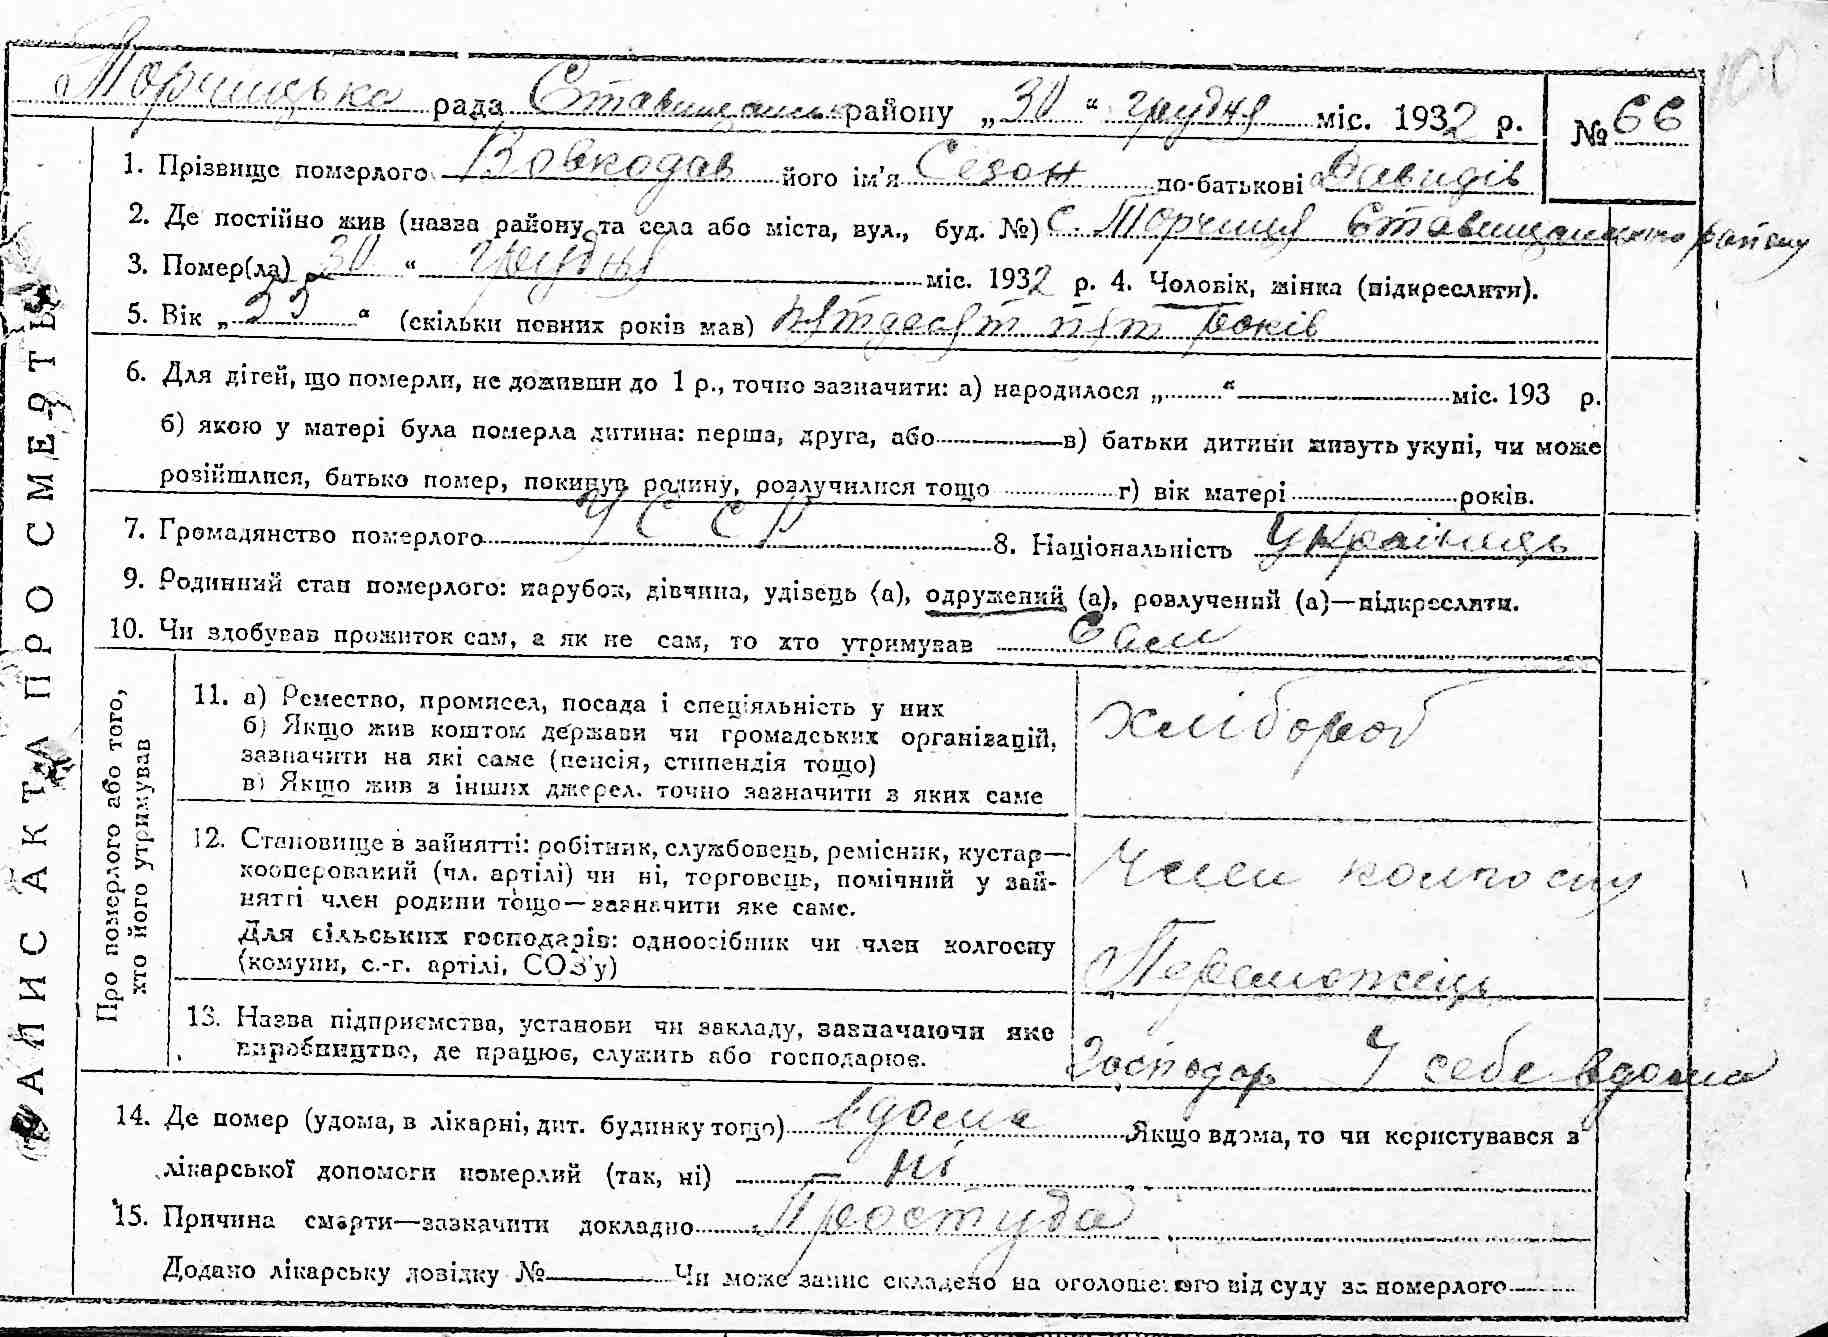 100
Торчицька рада Ставищанськ району „30“ грудня міс. 1932 р. № 66
1. Прізвище померлого Вовкодав його ім'я Сезон по-батькові Давидів
2. Де постійно жив (назва району та села або міста, вул., буд. №) с. Торчиця Ставищанського району
3. Помер(ла) 30 “ грудня міс. 1932 р. 4. Чоловік, жінка (підкреслити).
5. Вік „55“ (скільки повних років мав) пятдесят пят років
6. Для дітей, що померли, не доживши до 1 р., точно зазначити: а) народилося „ “ міс. 193 р.
б) якою у матері була померла дитина: перша, друга, або в) батьки дитини живуть укупі, чи може
розійшлися, батько помер, покинув родину, розлучилися тощо г) вік матері років.
7. Громадянство померлого УССР 8. Національність Українець
9. Родинний стан померлого: парубок, дівчина, удівець (а), одружений (а), розлучений (а)—підкреслити.
10. Чи здобував прожиток сам, а як не сам, то хто утримував Сам
ЗАПИС АКТА ПРО СМЕРТЬ
Про померлого або того,
хто його утримував
11. а) Ремество, промисел, посада і спеціяльність у них
б) Якщо жив коштом держави чи громадських організацій,
зазначити на які саме (пенсія, стипендія тощо)
в) Якщо жив з інших джерел, точно зазначити з яких саме
хлібороб
12. Становище в зайнятті: робітник, службовець, ремісник, кустар—
кооперований (чл. артілі) чи ні, торговець, помічний у зай-
нятті член родини тощо—зазначити яке саме.
Для сільських господарів: одноосібник чи член колгоспу
(комуни, с.-г. артілі, СОЗ'у)
Член колгоспу
Переможець
13. Назва підприємства, установи чи закладу, зазначаючи яке
виробництво, де працює, служить або господарює.
Господар У себе вдома
14. Де помер (удома, в лікарні, дит. будинку тощо) вдома Якщо вдома, то чи користувався з
лікарської допомоги померлий (так, ні) — ні
15. Причина смерти—зазначити докладно Простуда
Додано лікарську довідку № Чи може запис складено на оголошеного від суду за померлого